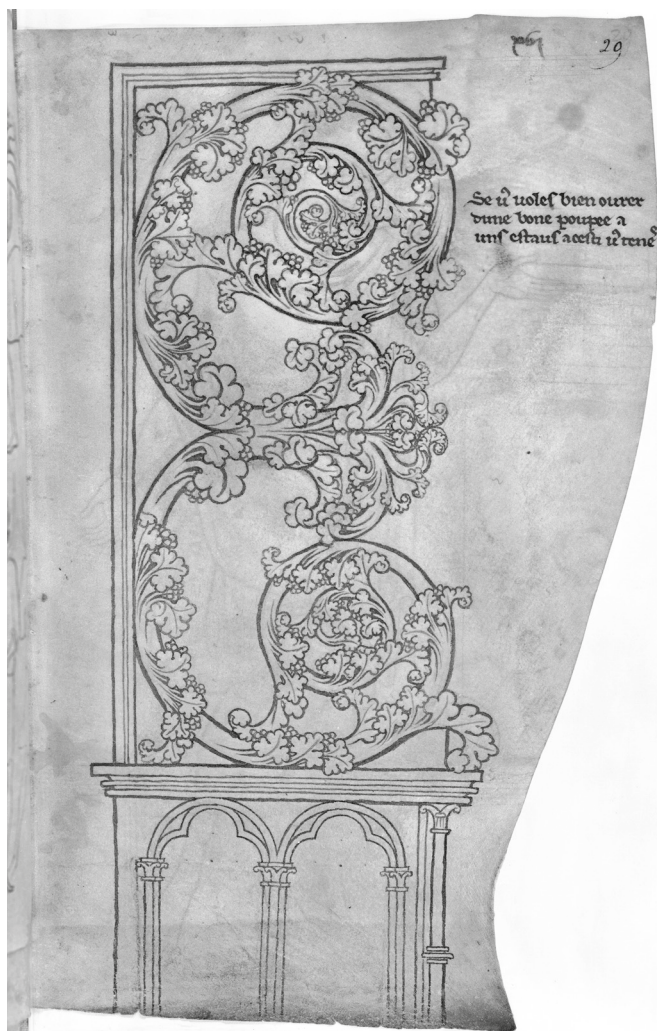 29
Se ů uoleſ bien ourer
dune bone poupee a
unſ eſtauſ aceſti ů tene᷒